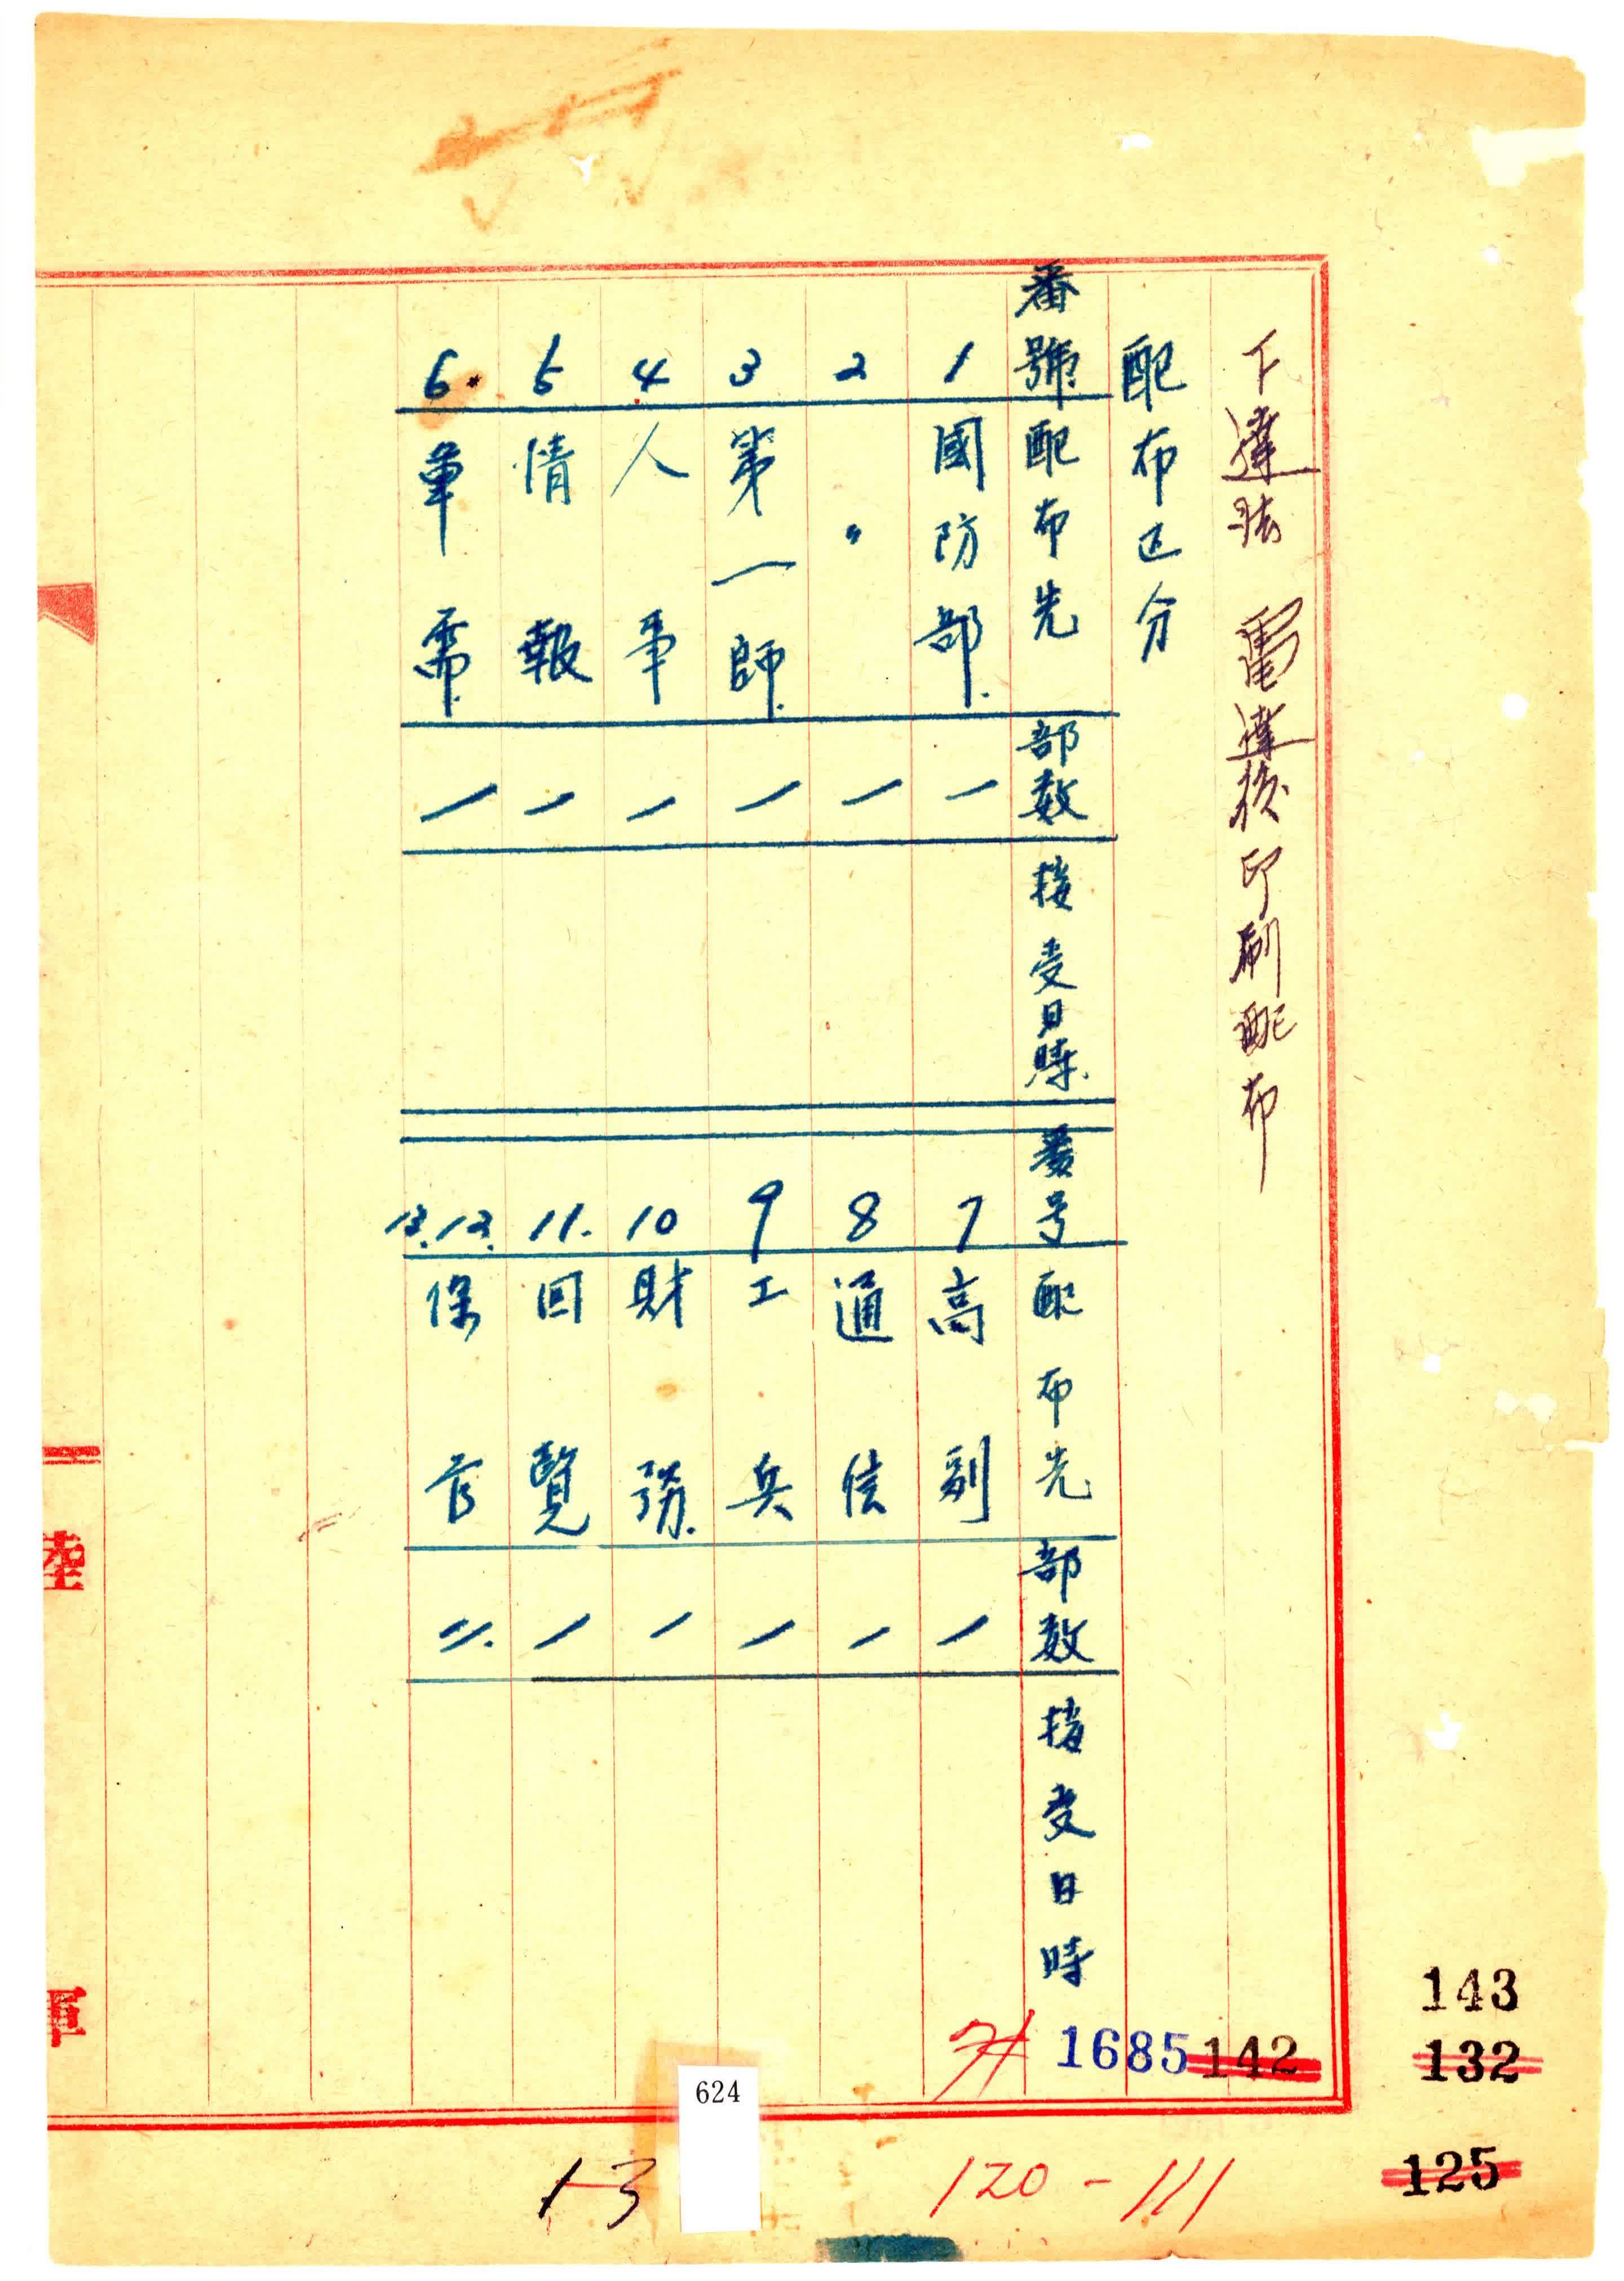 下達法 電達後印刷配布
配布区分
番號 配布先 部数 接受日時
1 國防部 一
2 〃 一
3 第一師 一
4 人事 一
5 情報 一
6. 軍需 一
番号 配布先 部数 接受日時
7 高副 一
8 通信 一
9 工兵 一
10 財務 一
11. 回覽 一
12. 13. 保官 二
陸
軍
1685 142
143
132
125
624
13
120-111